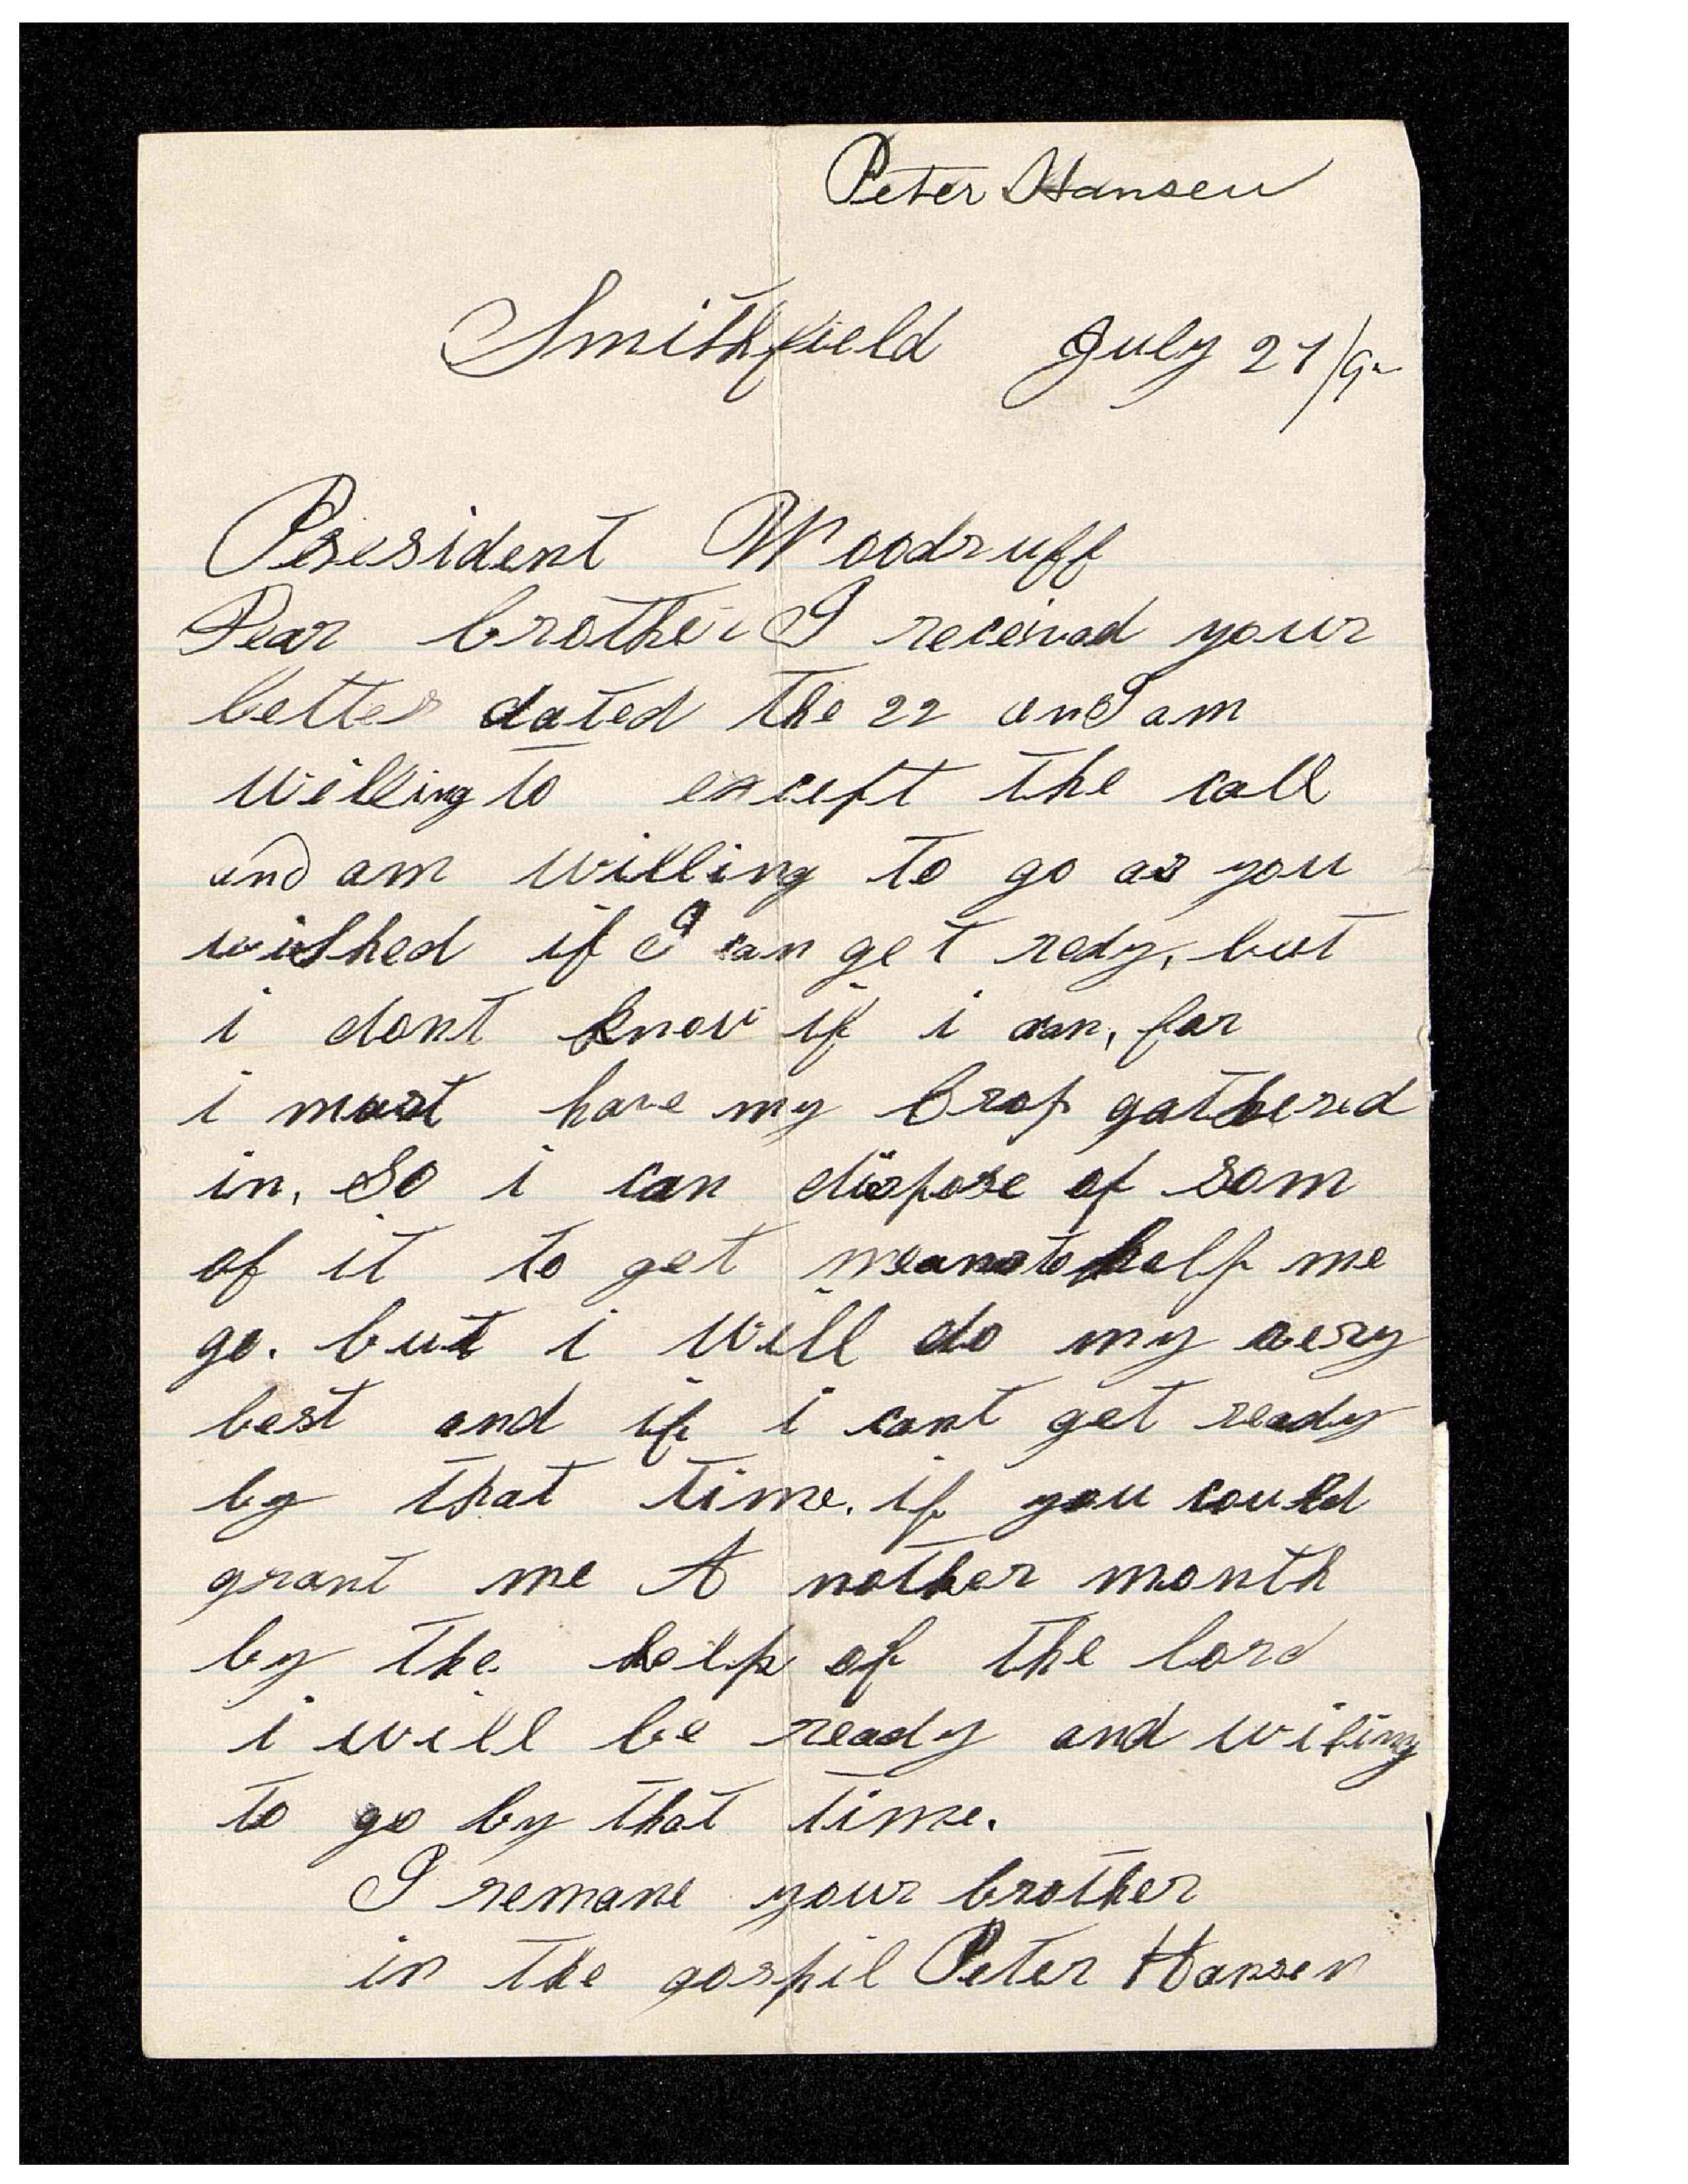 Peter Hansen
Smithfield July 27/9
President Woodruff
Dear brother I received your
letter dated the 22 and am
willing to except the call
and am willing to go as you
wished if I can get redy, but
i dont know if i can, for
i must have my Crop gathered
in, So i can dispose of som
of it to get means to help me
go. but i will do my very
best and if i cant get ready
by that time. if you could
grant me A nother month
by the help of the lord
i will be ready and wiling
to go by that time.
I remane your brother
in the gospil Peter Hansen